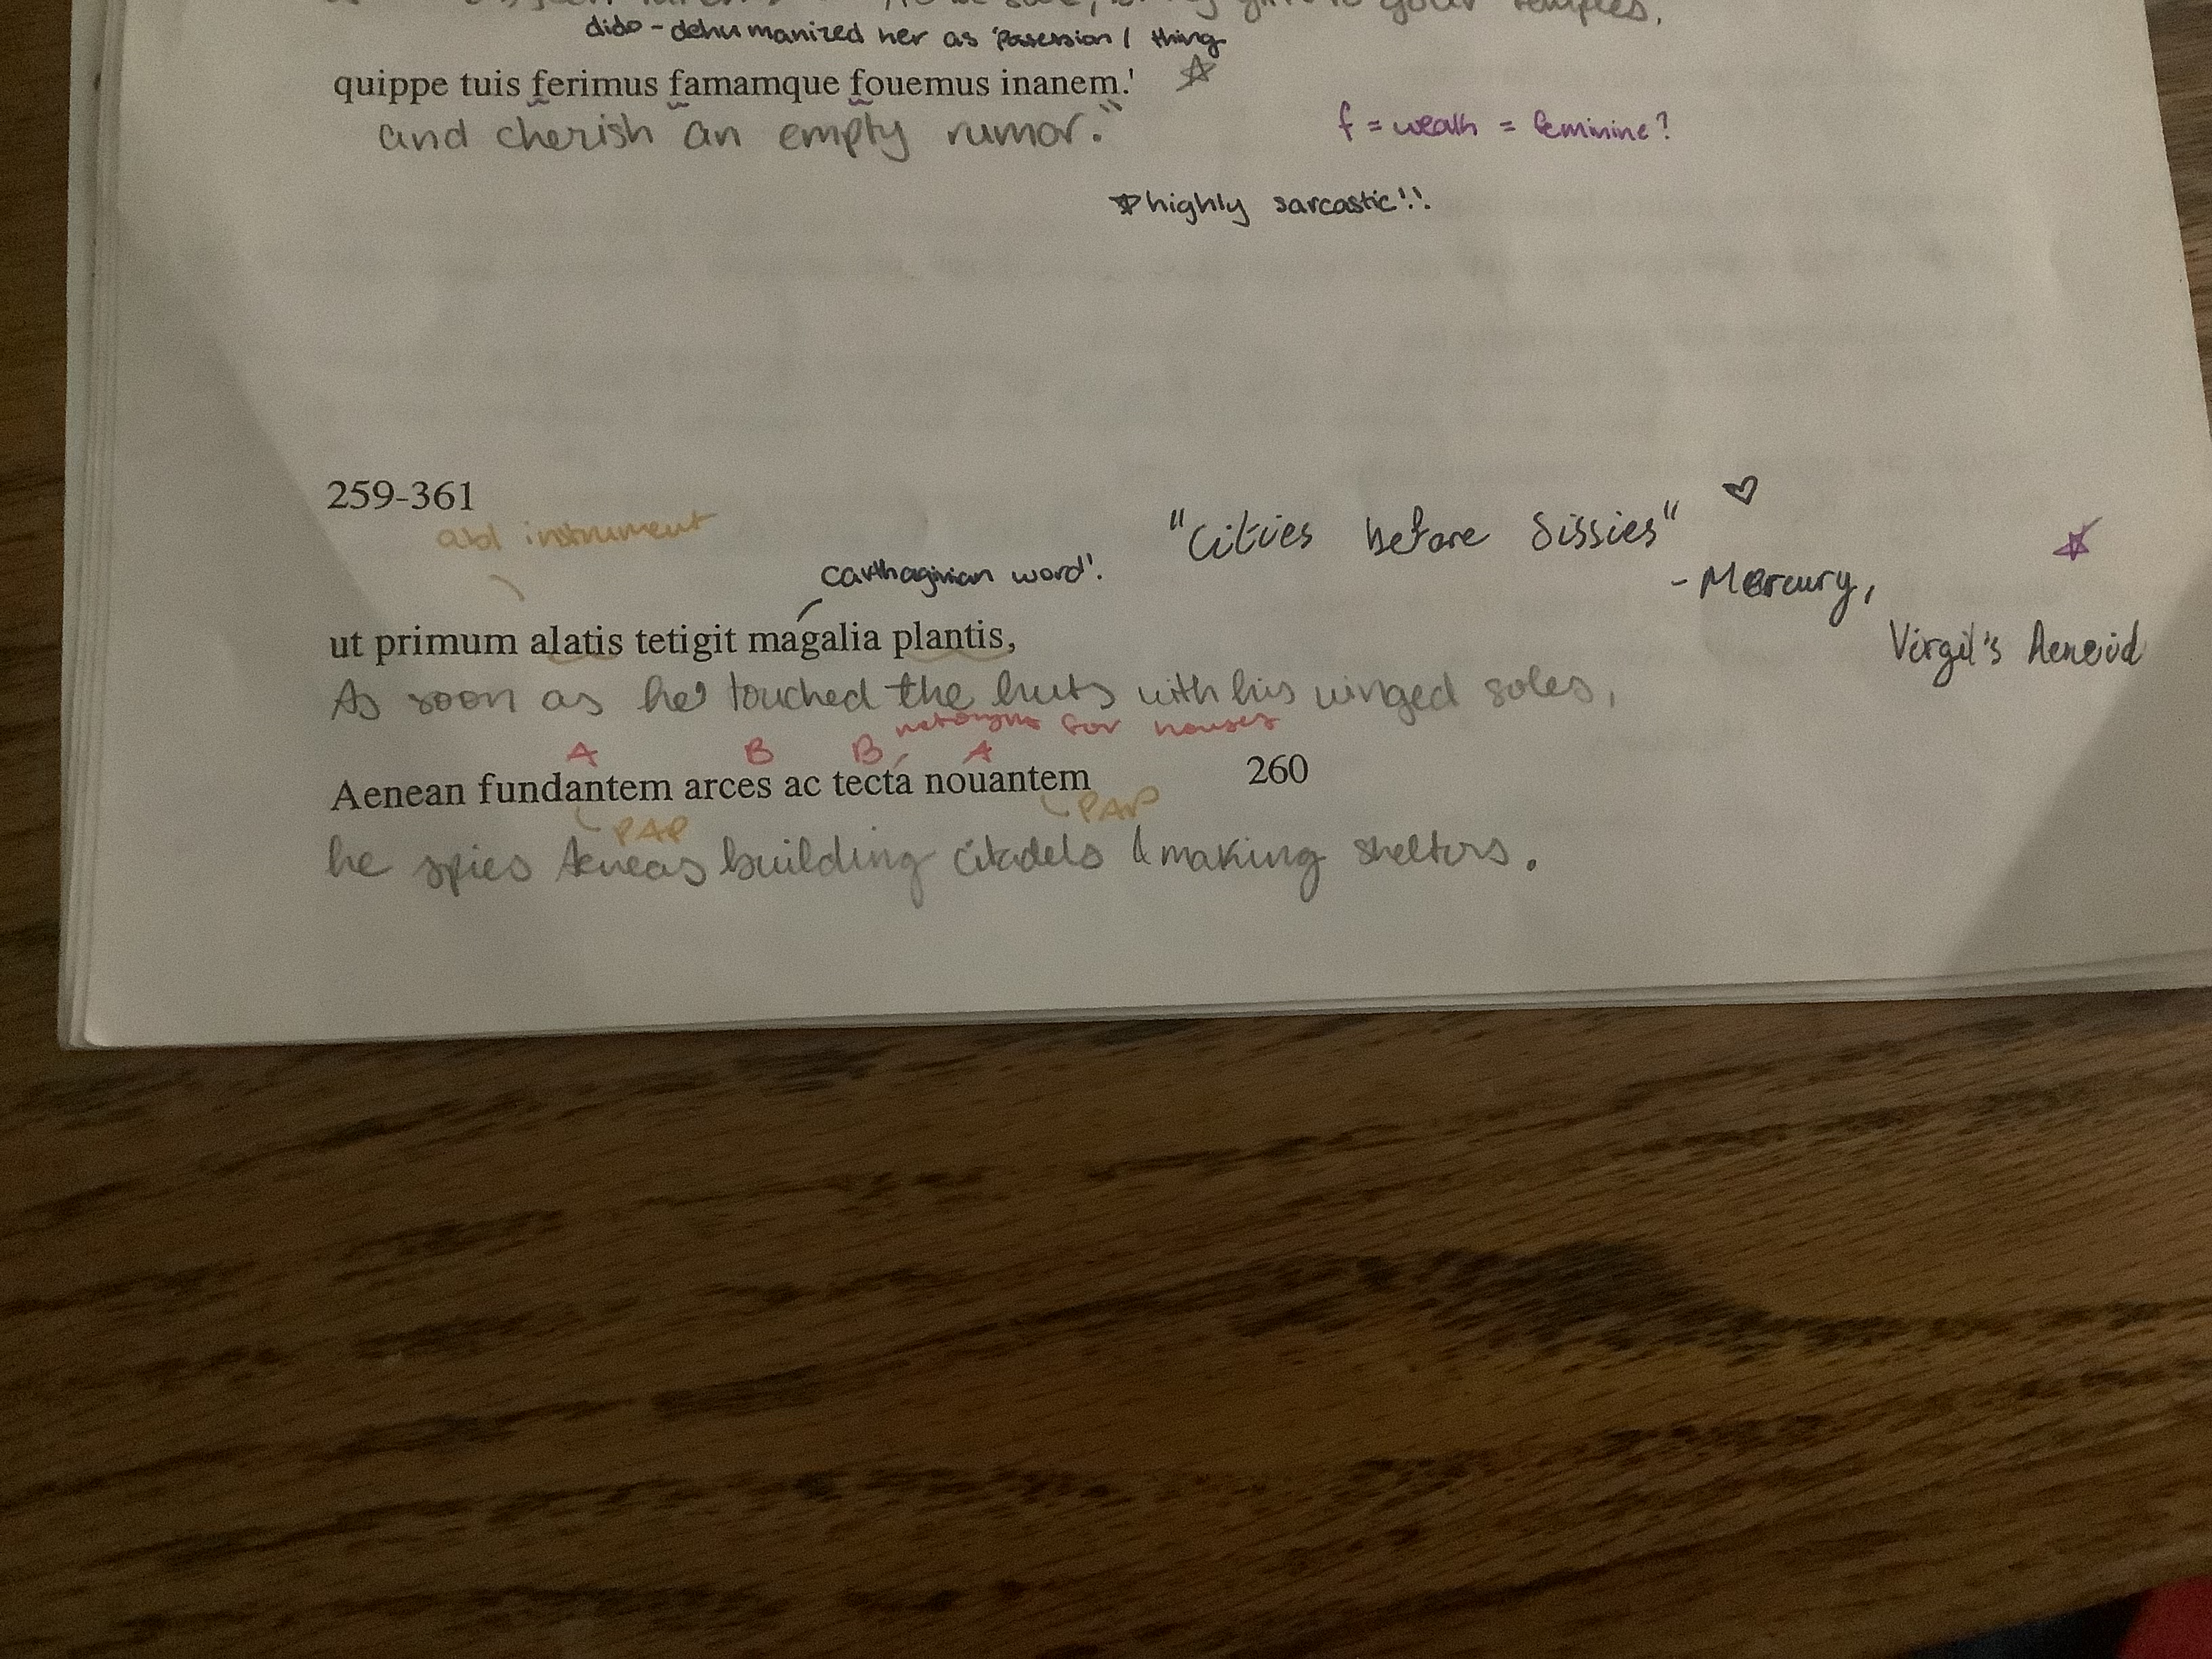 to your temples,
dido - dehumanized her as possession / thing
quippe tuis ferimus famamque fouemus inanem.'
and cherish an empty rumor."
f = weak = feminine?
highly sarcastic!!
259-361
abl instrument
"Cities before Sissies"
carthaginian word!
- Mercury,
Virgil's Aeneid
ut primum alatis tetigit magalia plantis,
As soon as he touched the huts with his winged soles,
metonym for houses
A B B A
Aenean fundantem arces ac tecta nouantem 260
PAP PAP
he spies Aeneas building citadels & making shelters.